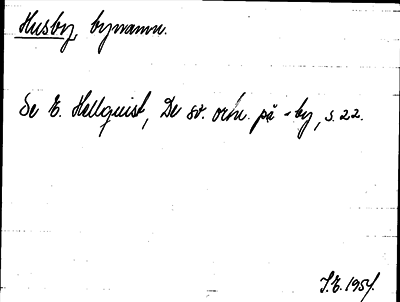 Husby, bynamn.
Se E. Hellquist, De sv. ortn. på -by, s. 22.
J.E. 1954.